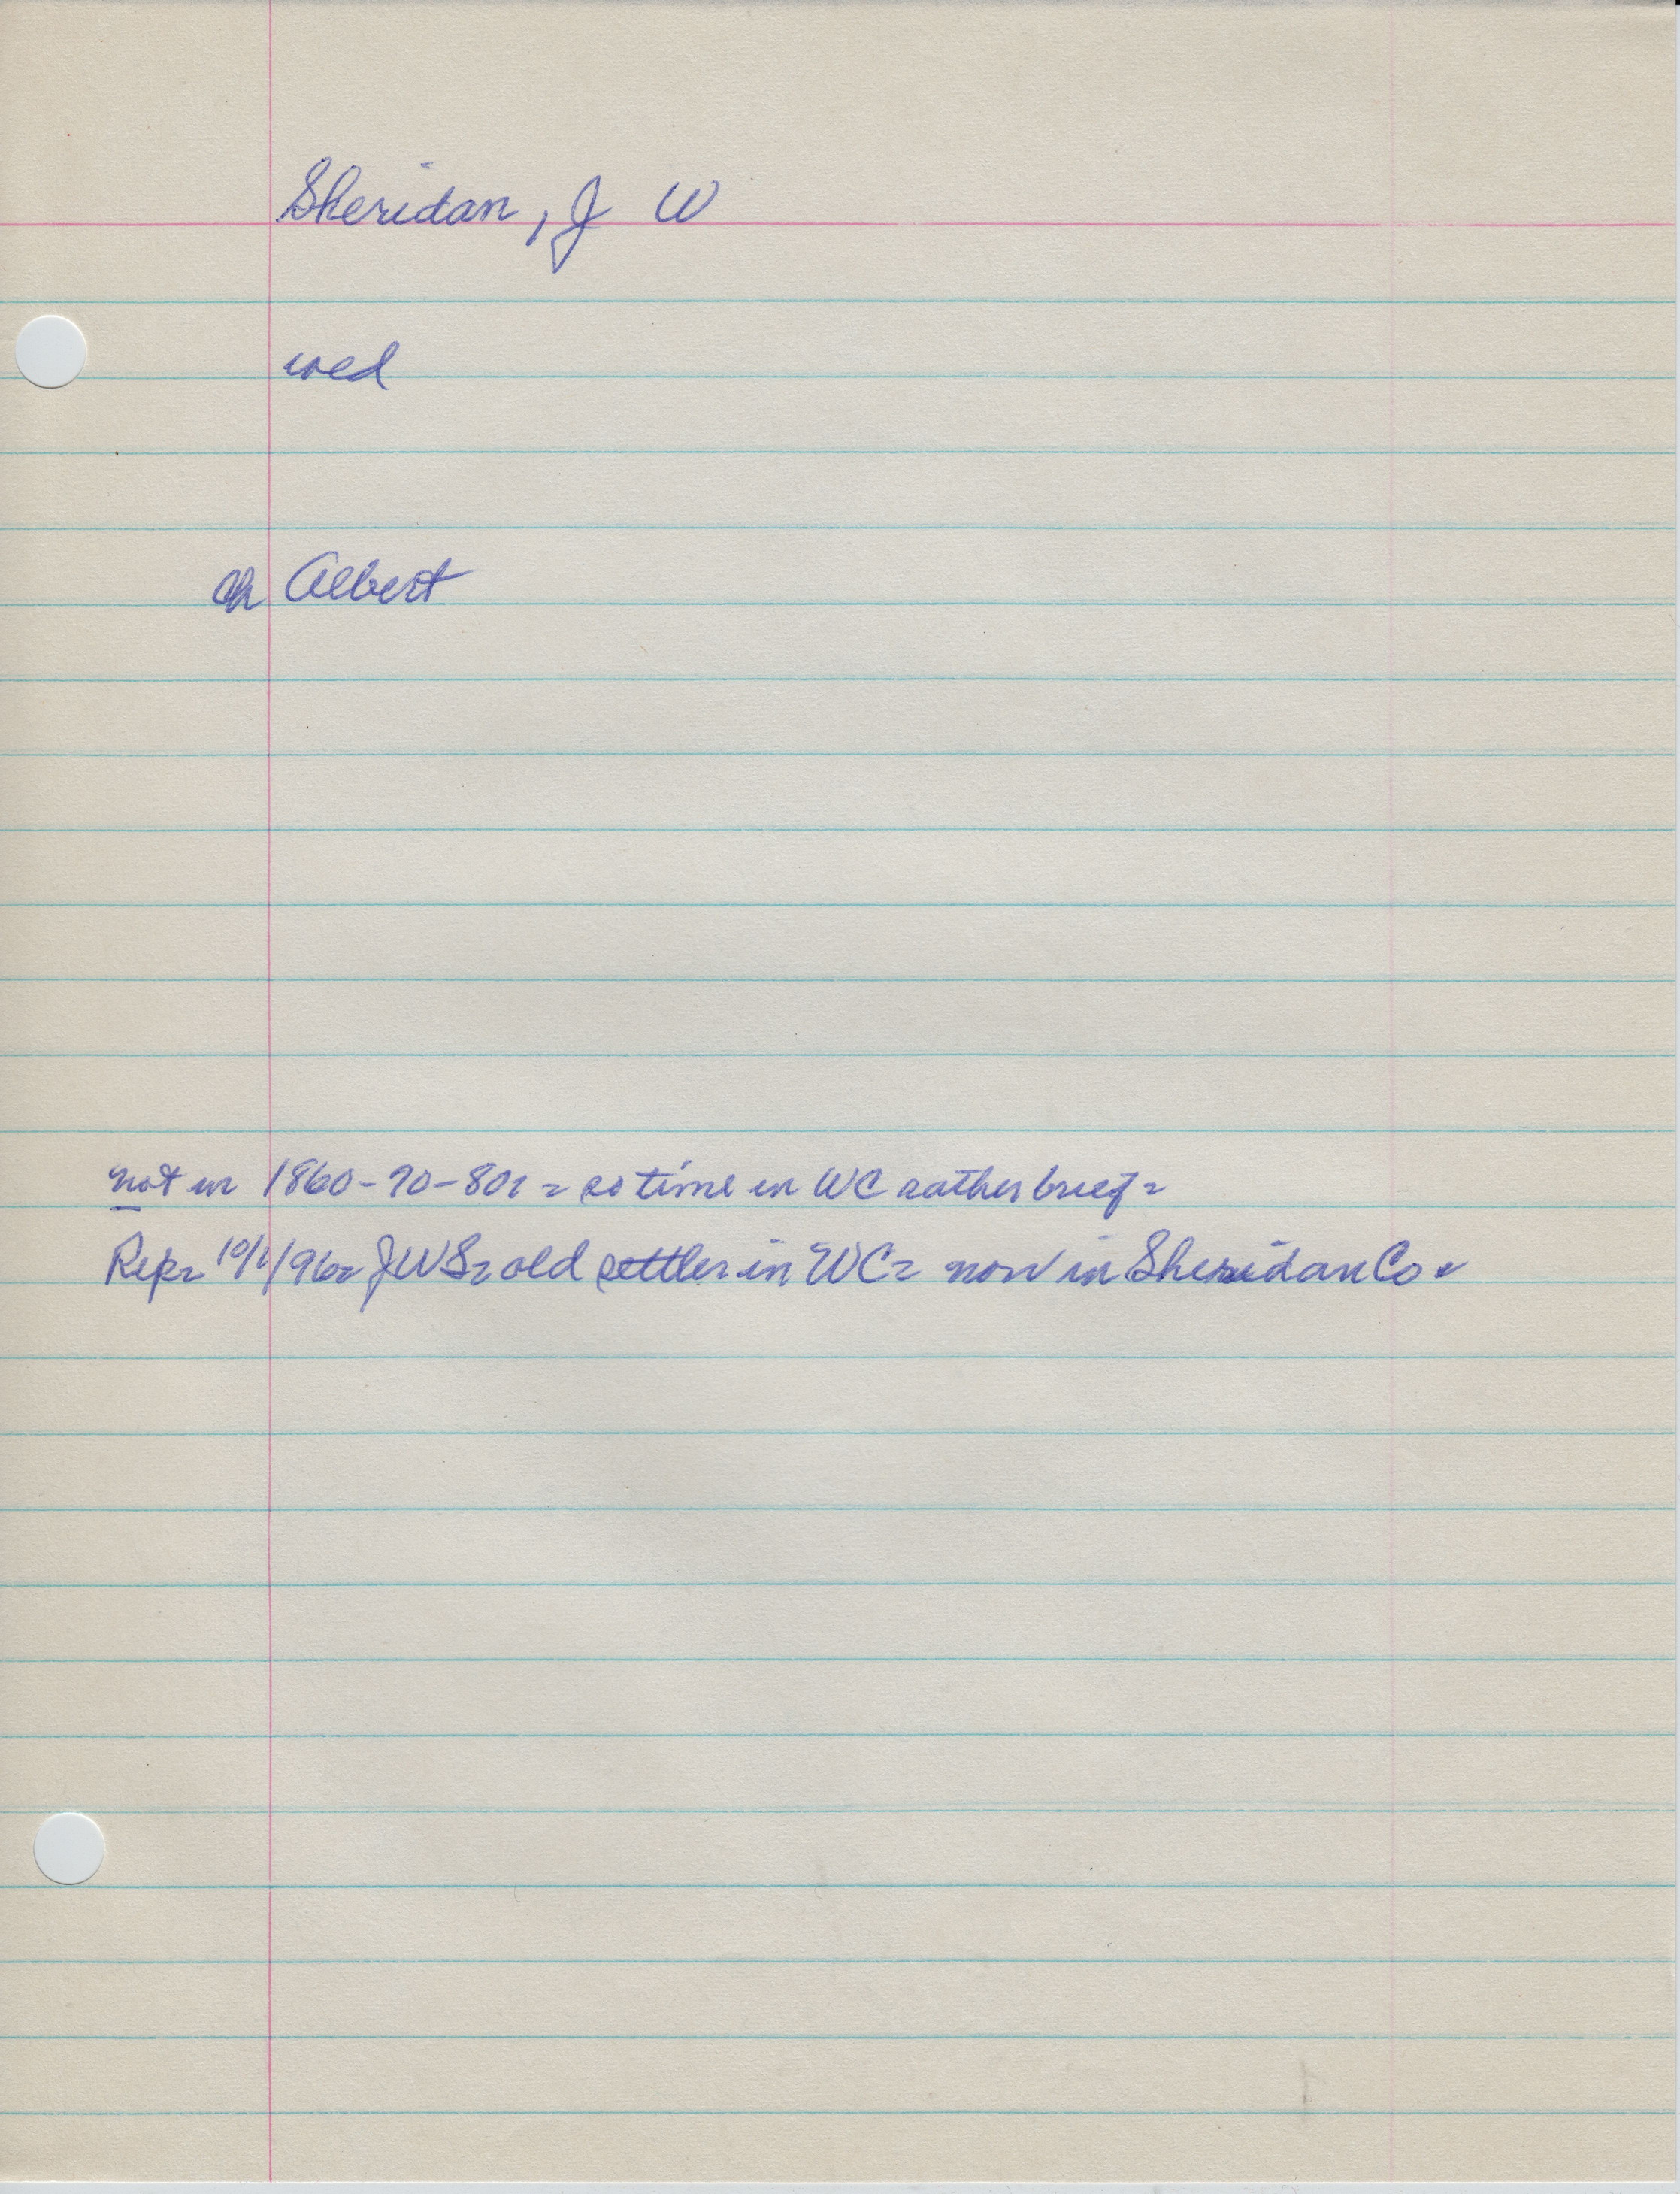 Sheridan, J W
wed
ch Albert
not in 1860-70-80s = so time in WC rather brief =
Rep= 10/1/96= JWS= old settler in WC= now in Sheridan Co =